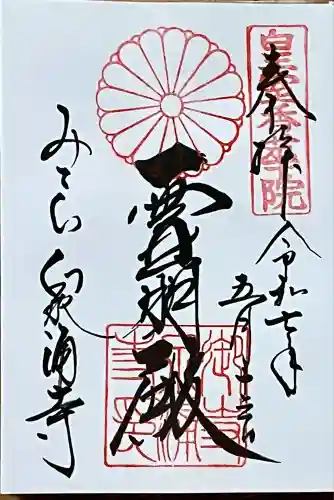 皇室香華院
奉拝
令和七年
五月十三日
霊明殿
みてら 泉涌寺